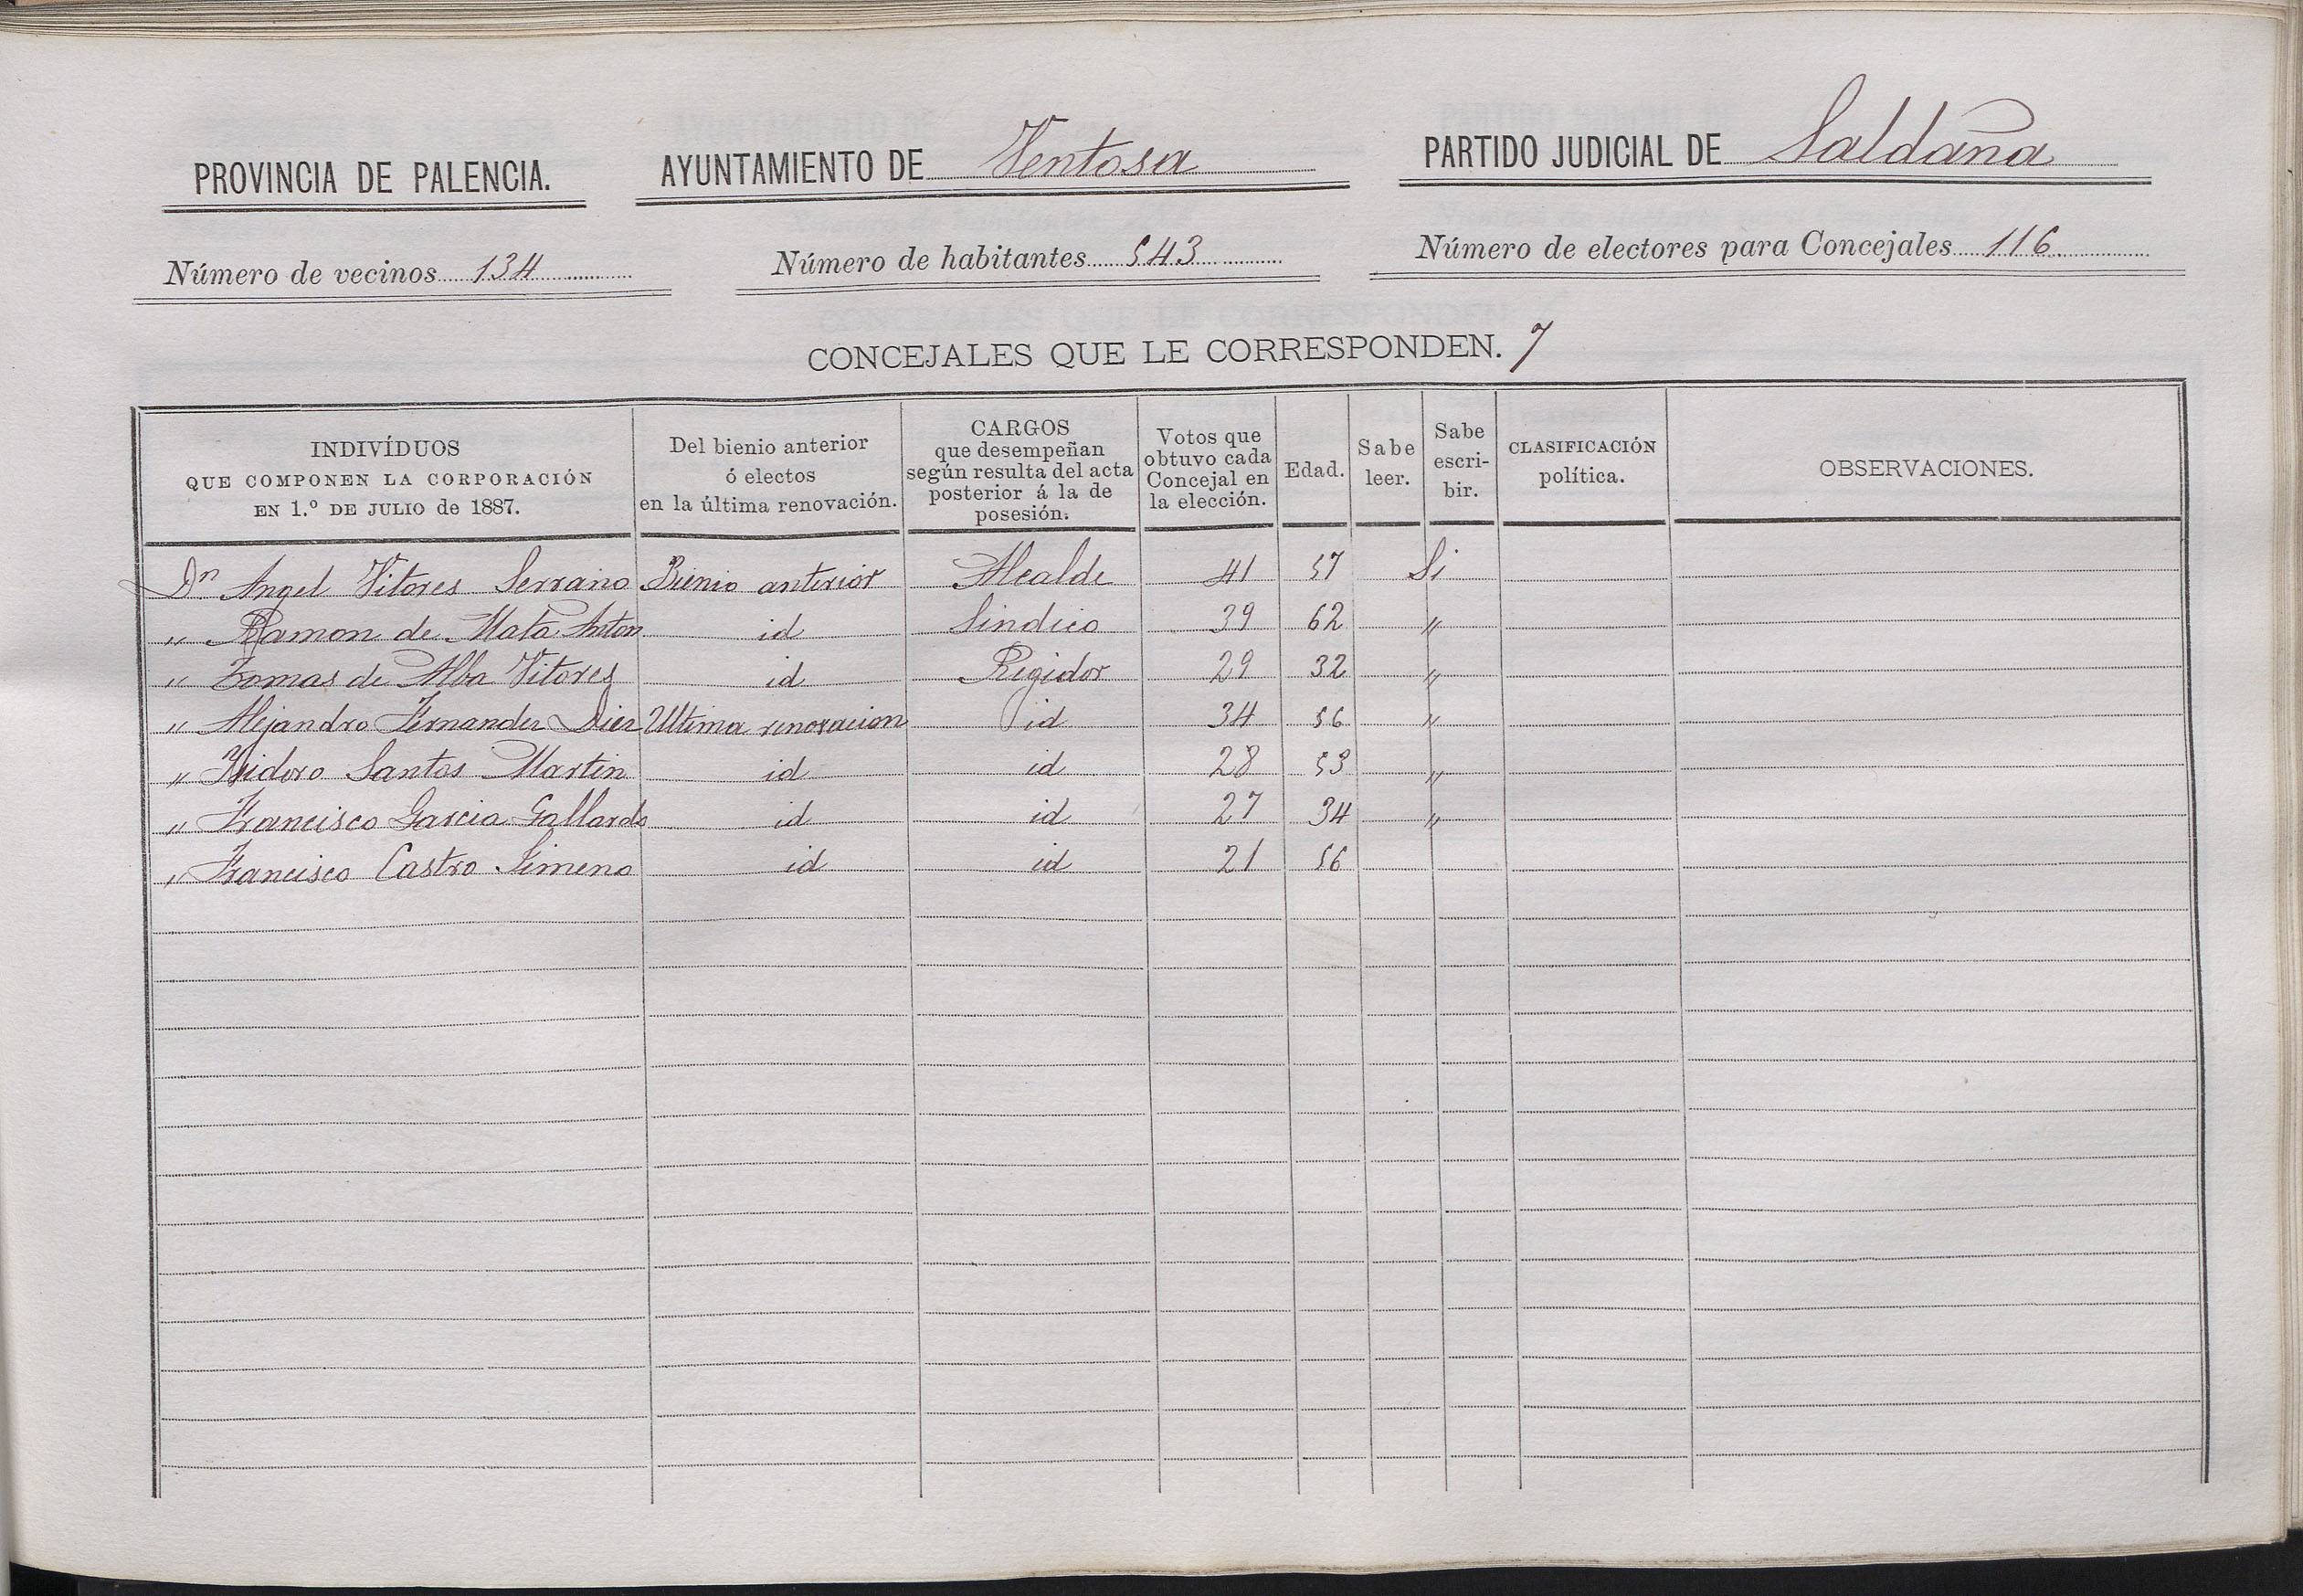 PROVINCIA DE PALENCIA. AYUNTAMIENTO DE Ventosa PARTIDO JUDICIAL DE Saldaña
Número de vecinos 134 Número de habitantes 543 Número de electores para Concejales 116
CONCEJALES QUE LE CORRESPONDEN. 7
INDIVÍDUOS
QUE COMPONEN LA CORPORACIÓN
EN 1.º DE JULIO de 1887.
Del bienio anterior
ó electos
en la última renovación.
CARGOS
que desempeñan
según resulta del acta
posterior á la de
posesión.
Votos que
obtuvo cada
Concejal en
la elección.
Edad.
Sabe
leer.
Sabe
escri-
bir.
CLASIFICACIÓN
política.
OBSERVACIONES.
Dn Angel Vitores Serrano Bienio anterior Alcalde 41 57 Si
" Ramon de Mata Anton id Sindico 39 62 "
" Tomas de Alba Vitores id Regidor 29 32 "
" Alejandro Fernandez Diez Ultima renovacion id 34 56 "
" Ysidoro Santos Martin id id 28 53 "
" Francisco Garcia Gallardo id id 27 34 "
" Francisco Castro Gimeno id id 21 56